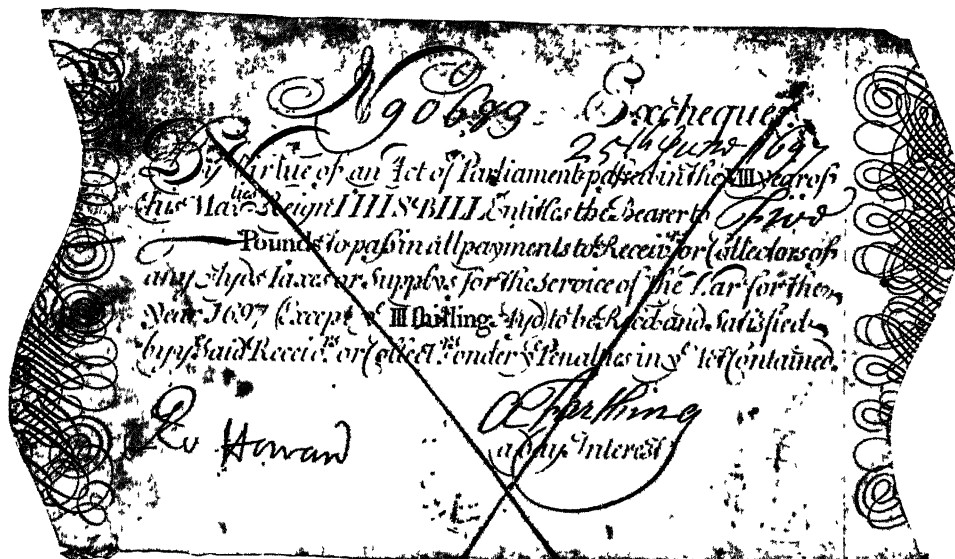 No 90699: Exchequer
25th June 1697
By Virtue of an Act of Parliament passed in the VIII year of
his Maties Reign THIS BILL Entitles the Bearer to Five
Pounds to pass in all payments to Receivrs or Collectors of
any Ayds Taxes or Supplys for the service of the War for the
Year 1697 (Except ye III shilling Ayd) to be Recd and Satisfied
by ye Said Receivrs or Collectrs under ye Penalties in ye Act Contained.
A Farthing
Howard
a day Interest